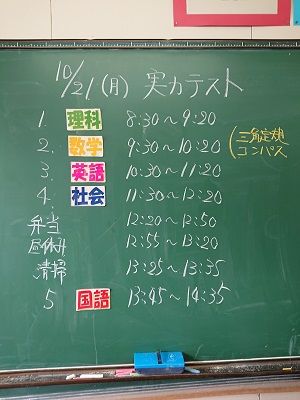 10/21(月) 実力テスト
1. 理科 8:30~9:20
2. 数学 9:30~10:20 (三角定規 コンパス
3. 英語 10:30~11:20
4. 社会 11:30~12:20
弁当 12:20~12:50
昼休み 12:55~13:20
清掃 13:25~13:35
5 国語 13:45~14:35